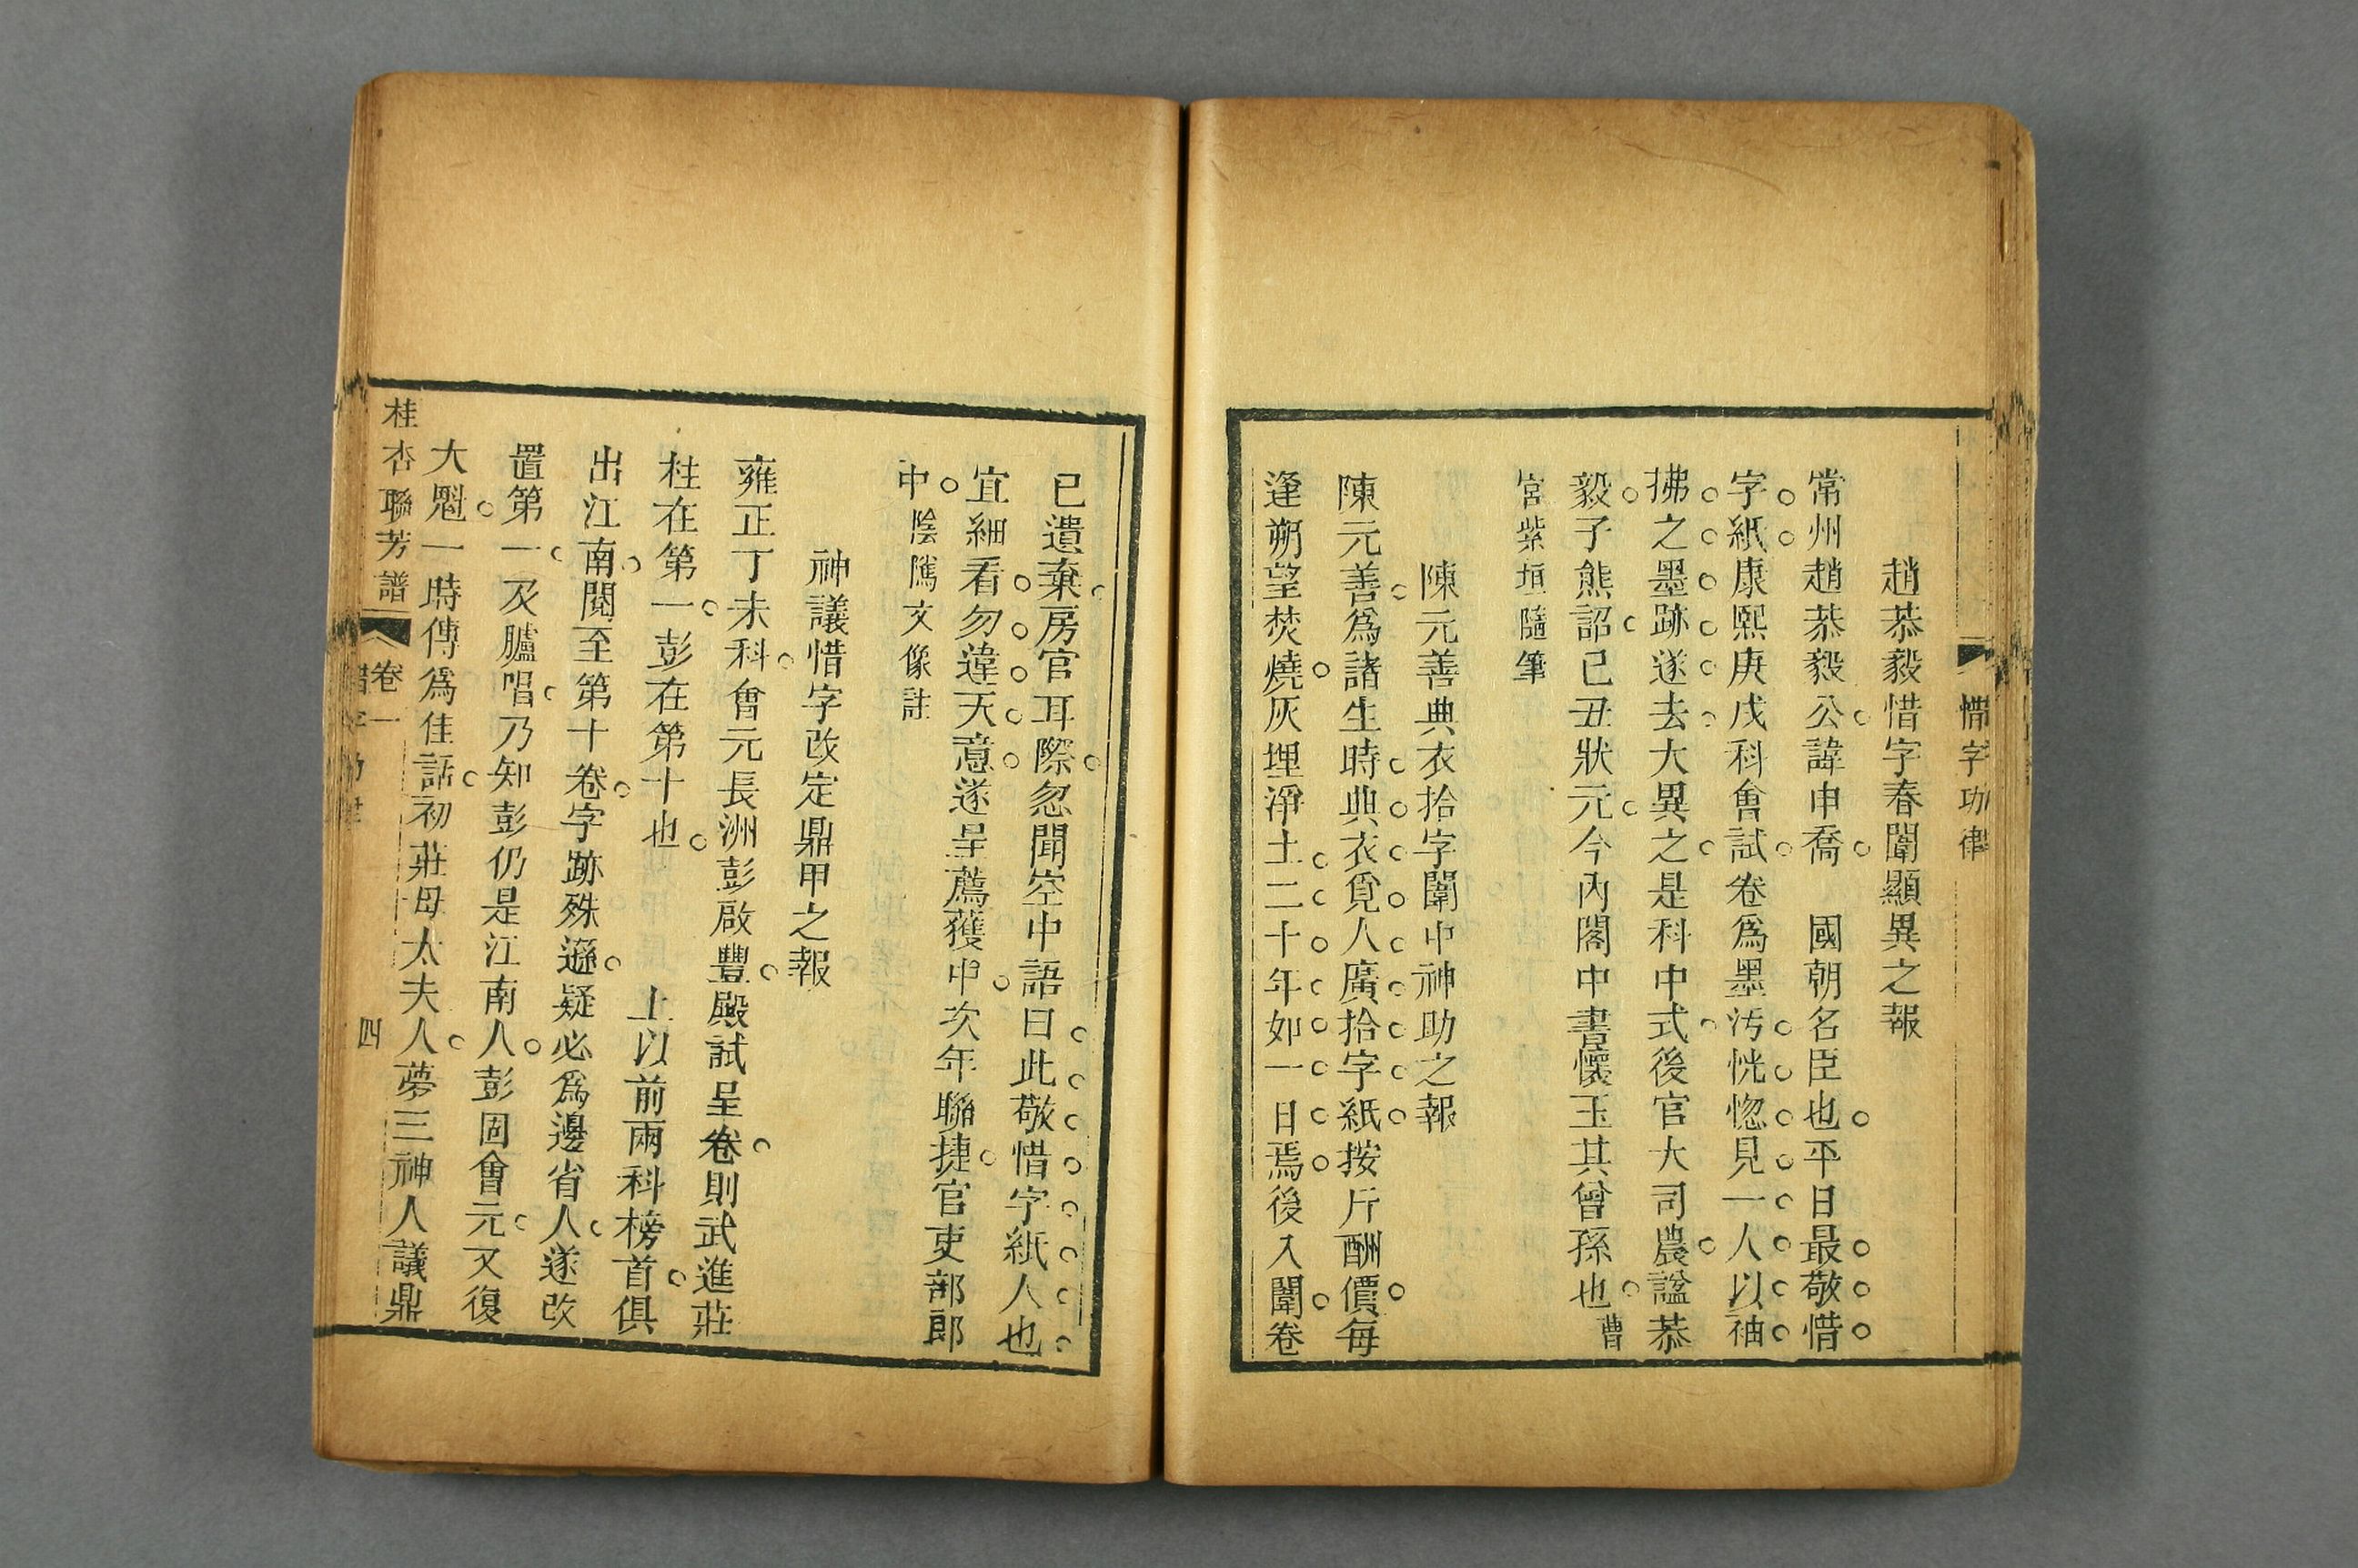 惜字功律
趙恭毅惜字春闈顯異之報
常州趙恭毅公諱申喬　國朝名臣也平日最敬惜
字紙康熙庚戌科會試卷爲墨汚恍惚見一人以袖
拂之墨跡遂去大異之是科中式後官大司農諡恭
毅子熊詔己丑狀元今內閣中書懷玉其曾孫也曹
宮紫垣隨筆
陳元善典衣拾字闈中神助之報
陳元善爲諸生時典衣覓人廣拾字紙按斤酬價每
逢朔望焚燒灰埋淨土二十年如一日焉後入闈卷
已遺棄房官耳際忽聞空中語曰此敬惜字紙人也
宜細看勿違天意遂呈薦獲中次年聯捷官吏部郎
中陰隲文像註
神議惜字改定鼎甲之報
雍正丁未科會元長洲彭啟豐殿試呈卷則武進莊
柱在第一彭在第十也　　　上以前兩科榜首俱
出江南閱至第十卷字跡殊遜疑必爲邊省人遂改
置第一及臚唱乃知彭仍是江南人彭固會元又復
大魁一時傳爲佳話初莊母太夫人夢三神人議鼎
桂杏聯芳譜　卷一　四